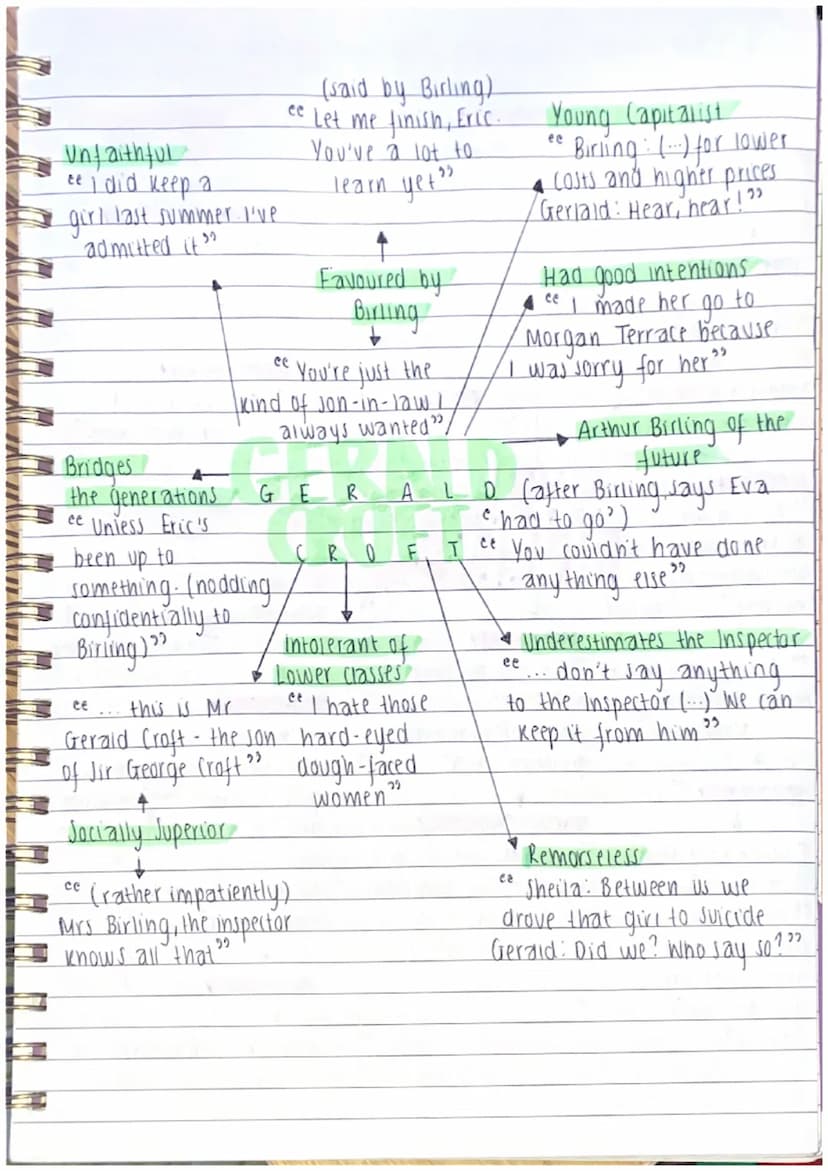 (said by Birling)
“ Let me finish, Eric.
You've a lot to
learn yet”
Young Capitalist
“ Birling: (...) for lower
costs and higher prices
Gerlald: Hear, hear!”
Unfaithful
“ I did keep a
girl last summer. I've
admitted it”
Favoured by
Birling
“ You're just the
kind of son-in-law I
always wanted”
Had good intentions
“ I made her go to
Morgan Terrace because
I was sorry for her”
GERALD
CROFT
G E R A L D
C R O F T
Arthur Birling of the
future
(after Birling says Eva
‘had to go’)
“ You couldn't have done
anything else”
Bridges
the generations
“ Unless Eric's
been up to
something. (nodding
confidentially to
Birling)”
Intolerant of
Lower classes
“ I hate those
hard-eyed
dough-faced
women”
Underestimates the Inspector
“ ... don't say anything
to the Inspector (...) We can
keep it from him”
“ ... this is Mr
Gerald Croft - the son
of Sir George Croft”
Socially Superior
“ (rather impatiently)
Mrs Birling, the inspector
knows all that”
Remorseless
“ Sheila: Between us we
drove that girl to suicide
Gerald: Did we? Who say so?”